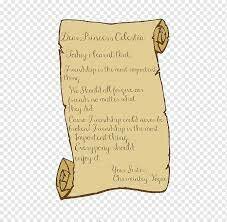 Dear Princess Celestia
Today I learnt that,
Friendship is the most important
thing
We should all forgive our
friends no matter what
they did.
Cause Friendship could never be
broken! Friendship is the most
Important thing
Everypony should
enjoy it.
Your Sister,